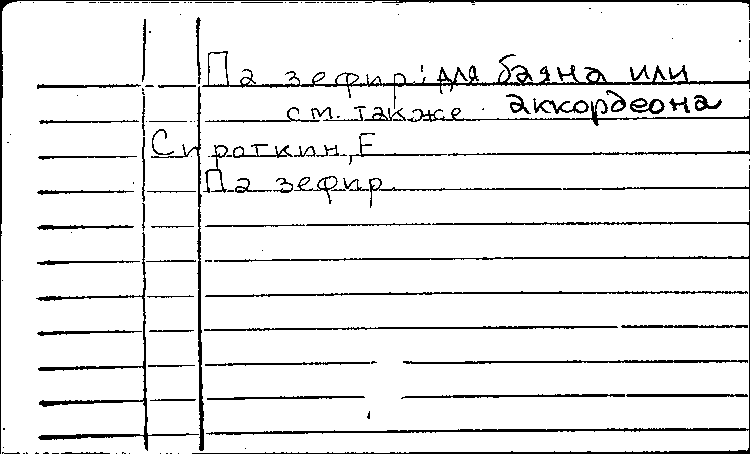 Па зефир: для баяна или
см. также аккордеона
Сироткин, Е
Па зефир